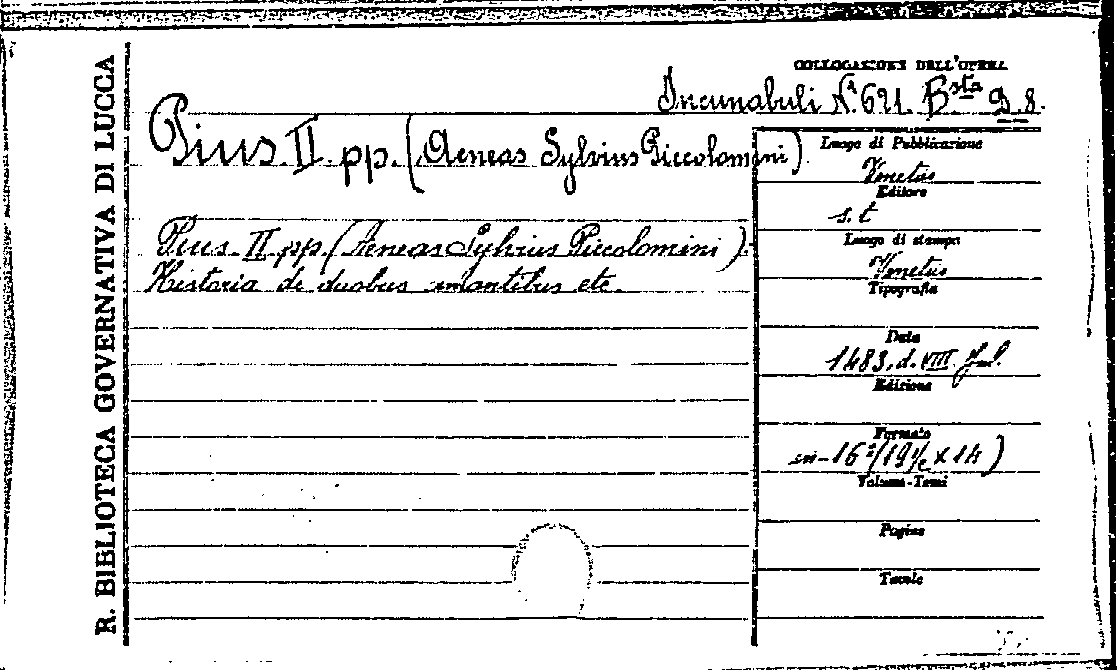 R. BIBLIOTECA GOVERNATIVA DI LUCCA
COLLOCAZIONE DELL'OPERA
Incunabuli N.º 621. Bsta D. 8.
Pius II pp. (Aeneas Sylvius Piccolomini).
Pius II pp. (Aeneas Sylvius Piccolomini).
Historia de duobus amantibus etc.
Luogo di Pubblicazione
Venetiis
Editore
s. t
Luogo di stampa
Venetiis
Tipografia
Data
1483, d. VIII. Jul.
Edizione
Formato
in-16º (19½ x 14)
Volume-Tomi
Pagine
Tavole